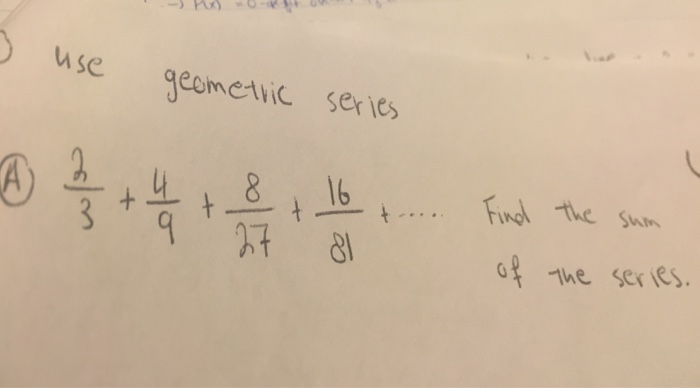 use geometric series
(A) 2/3 + 4/9 + 8/27 + 16/81 + ..... Find the sum
of the series.